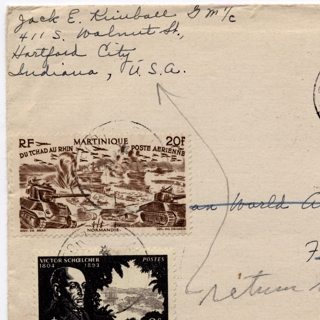 Jack E. Kimball GM 1/c
411 S. Walnut St.,
Hartford City,
Indiana, U.S.A.
RF MARTINIQUE 20F
DU TCHAD AU RHIN POSTE AERIENNE
NORMANDIE
an World A
VICTOR SCHOELCHER
1804 1893 POSTES
return